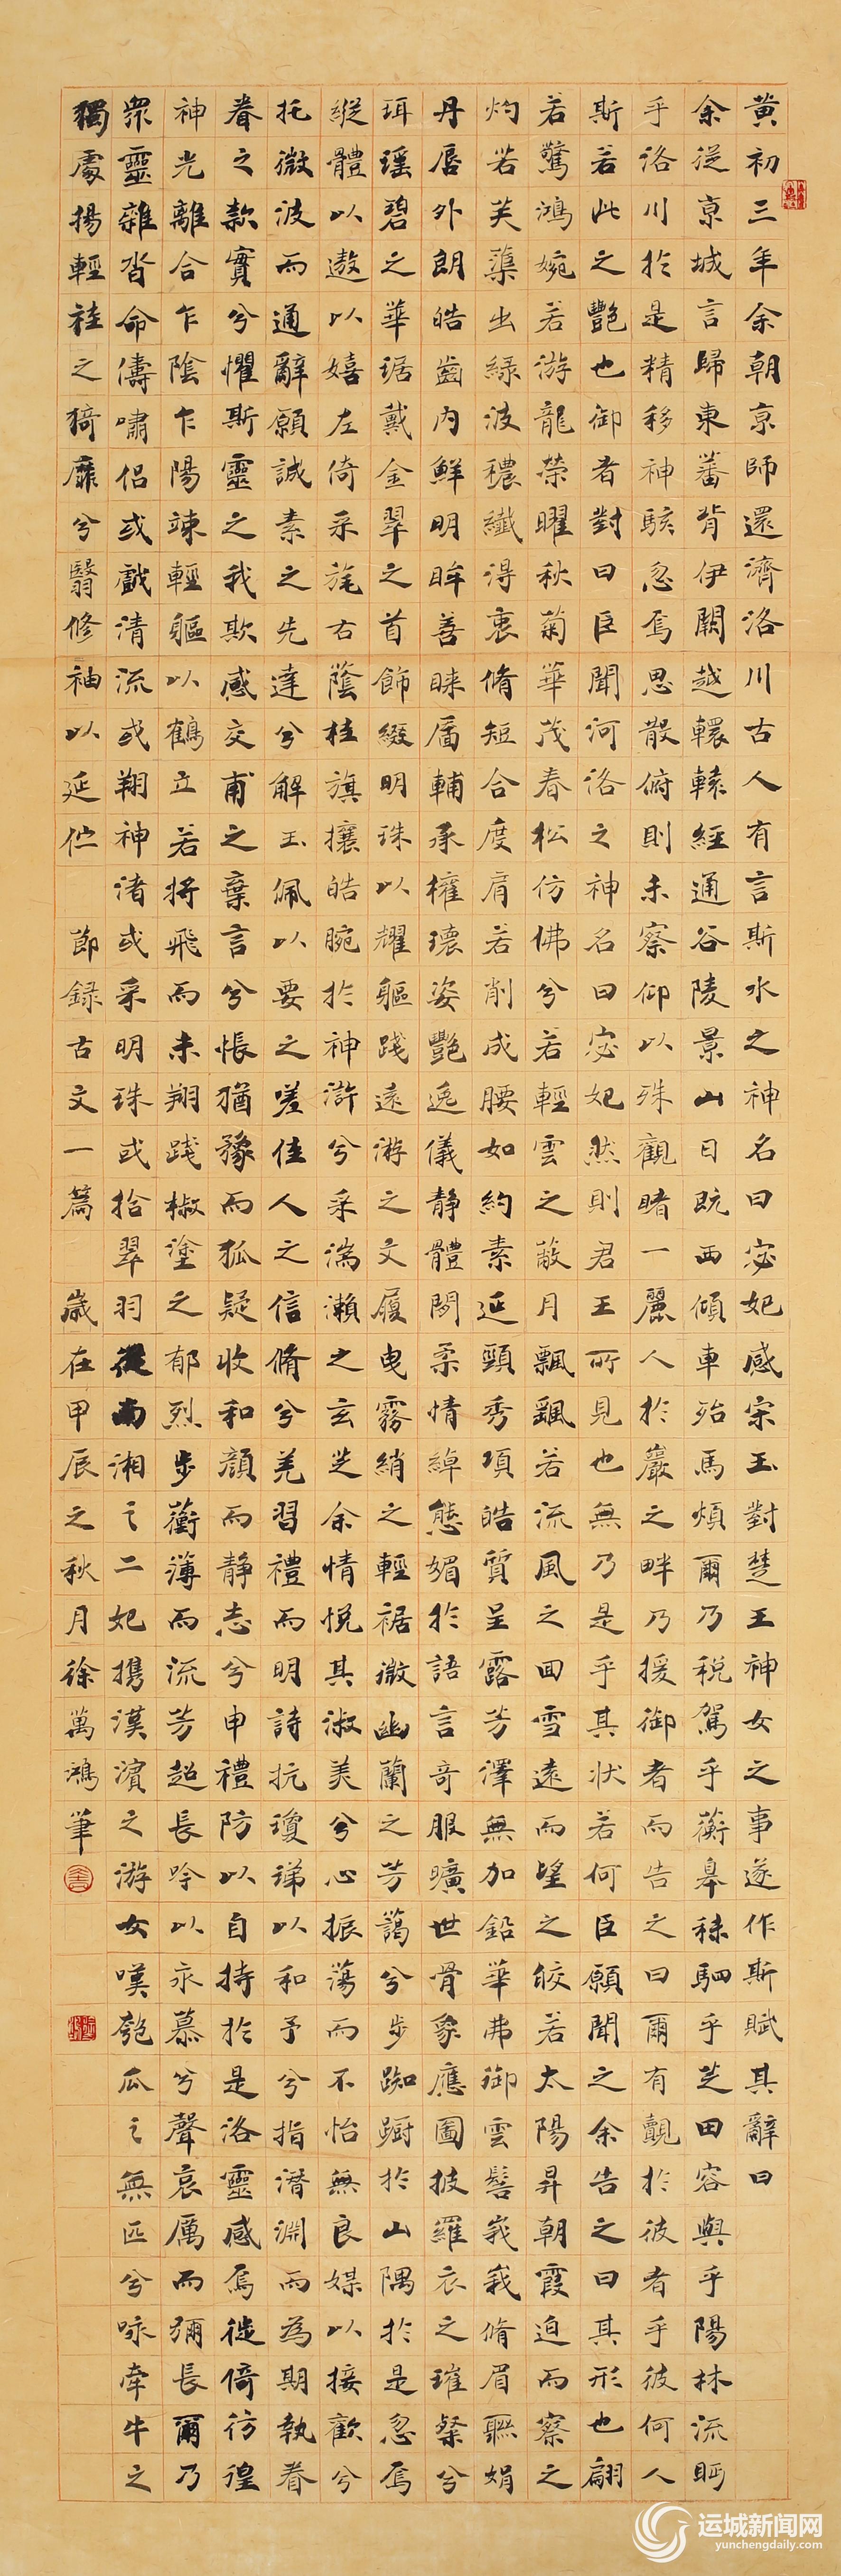 黃初三年余朝京師還濟洛川古人有言斯水之神名曰宓妃感宋玉對楚王神女之事遂作斯賦其辭曰
余從京城言歸東蕃背伊闕越轘轅經通谷陵景山日既西傾車殆馬煩爾乃稅駕乎蘅皋秣駟乎芝田容與乎陽林流眄
乎洛川於是精移神駭忽焉思散俯則未察仰以殊觀睹一麗人於巖之畔乃援御者而告之曰爾有覿於彼者乎彼何人
斯若此之艷也御者對曰臣聞河洛之神名曰宓妃然則君王所見也無乃是乎其狀若何臣願聞之余告之曰其形也翩
若驚鴻婉若游龍榮曜秋菊華茂春松仿佛兮若輕雲之蔽月飄颻若流風之回雪遠而望之皎若太陽昇朝霞迫而察之
灼若芙蕖出綠波穠纖得衷脩短合度肩若削成腰如約素延頸秀項皓質呈露芳澤無加鉛華弗御雲髻峩峩脩眉聯娟
丹唇外朗皓齒內鮮明眸善睞靨輔承權瓌姿艷逸儀静體閑柔情綽態媚於語言奇服曠世骨象應圖披羅衣之璀粲兮
珥瑤碧之華琚戴金翠之首飾綴明珠以耀軀踐遠游之文履曳霧綃之輕裾微幽蘭之芳藹兮步踟躕於山隅於是忽焉
縱體以遨以嬉左倚采旄右蔭桂旗攘皓腕於神滸兮采湍瀨之玄芝余情悅其淑美兮心振蕩而不怡無良媒以接歡兮
托微波而通辭願誠素之先達兮解玉佩以要之嗟佳人之信脩兮羌習禮而明詩抗瓊珶以和予兮指潛淵而為期執眷
眷之款實兮懼斯靈之我欺感交甫之棄言兮悵猶豫而狐疑收和顏而静志兮申禮防以自持於是洛靈感焉徙倚彷徨
神光離合乍陰乍陽竦輕軀以鶴立若將飛而未翔踐椒塗之郁烈步蘅薄而流芳超長吟以永慕兮聲哀厲而彌長爾乃
眾靈雜沓命儔嘯侶或戲清流或翔神渚或采明珠或拾翠羽從南湘之二妃攜漢濱之游女嘆匏瓜之無匹兮咏牽牛之
獨處揚輕袿之猗靡兮翳修袖以延佇 節錄古文一篇 歲在甲辰之秋月徐萬鴻筆
运城新闻网
yunchengdaily.com